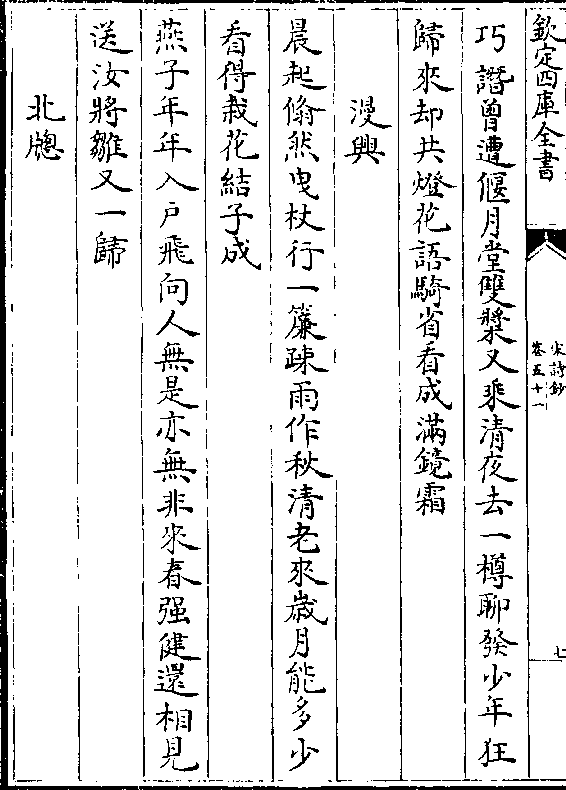 欽定四庫全書
宋詩鈔
卷五十一
七
巧譖曾遭偃月堂雙槳又乘清夜去一樽聊發少年狂
歸來却共燈花語騎省看成滿鏡霜
漫興
晨起翛然曵杖行一簾疎雨作秋清老來歳月能多少
看得栽花結子成
燕子年年入戸飛向人無是亦無非來春强健還相見
送汝將雛又一歸
北牕